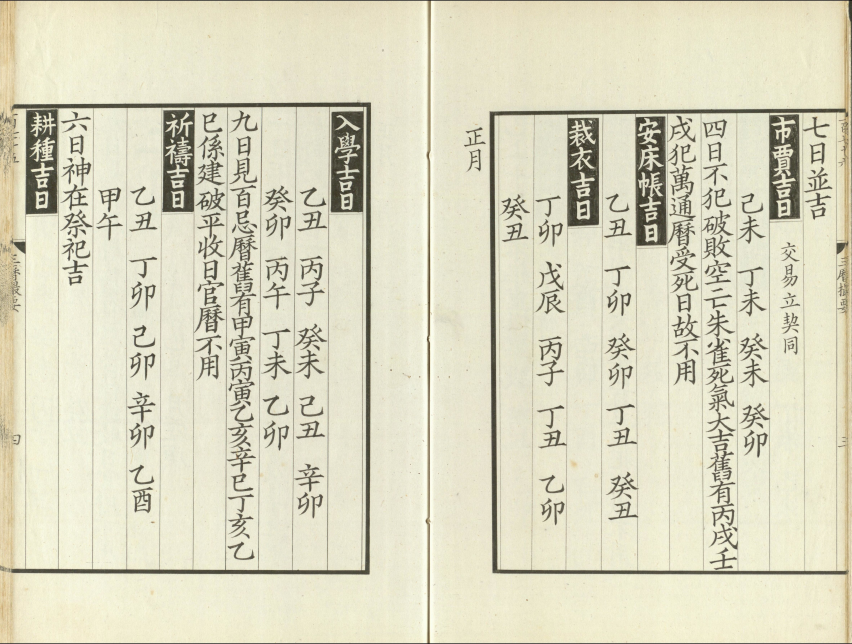 七日並吉
市賈吉日　交易立契同
己未　丁未　癸未　癸卯
四日不犯破敗空亡朱雀死氣大吉舊有丙戌壬
戌犯萬通曆受死日故不用
安床帳吉日
乙丑　丁卯　癸卯　丁丑　癸丑
裁衣吉日
丁卯　戊辰　丙子　丁丑　乙卯
癸丑
正月
入學吉日
乙丑　丙子　癸未　己丑　辛卯
癸卯　丙午　丁未　乙卯
九日見百忌曆舊有甲寅丙寅乙亥辛巳丁亥乙
巳係建破平收日官曆不用
祈禱吉日
乙丑　丁卯　己卯　辛卯　乙酉
甲午
六日神在祭祀吉
耕種吉日
三曆撮要
四